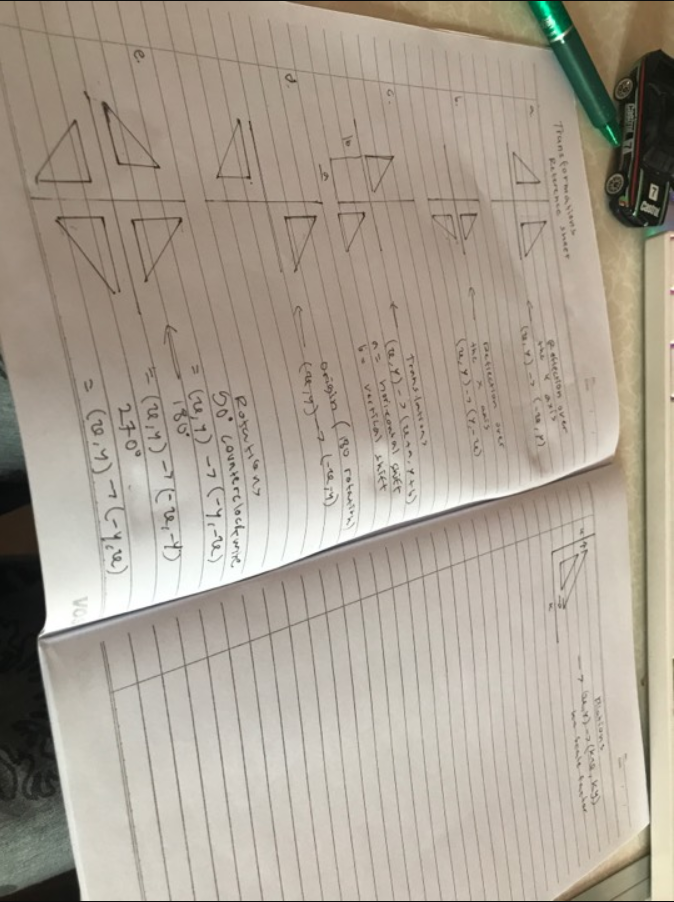 Transformations
Reference sheet
a.
Reflection over
the y axis
(x, y) → (-x, y)
b.
Reflection over
the x axis
(x, y) → (y, -x)
c.
b
a
Translations
(x, y) → (x+a, y+b)
a = horizontal shift
b = vertical shift
d.
origin (180 rotation)
(x, y) → (-x, y)
e.
Rotations
90° counterclockwise
= (x, y) → (-y, -x)
180°
= (x, y) → (-x, -y)
270°
= (x, y) → (-y, x)
→ (x, y) → (kx, ky)
k = scale factor
Castrol
Castrol